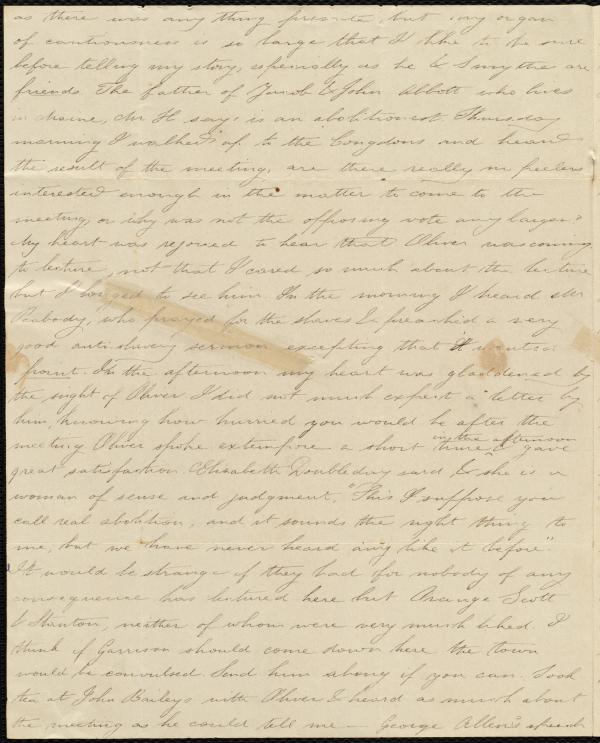 as there was any thing present, but my organ
of cautiousness is so large that I like to be sure
before telling my story, especially as he & Smythe are
friends. The father of Jacob & John Abbott who lives
in Maine, Mr H. says is an abolitionist. Thursday
morning I walked up to the Congdons and heard
the result of the meeting, are there really no feelers
interested enough in the matter to come to the
meeting, or why was not the opposing vote any larger?
My heart was rejoiced to hear that Oliver was coming
to lecture, not that I cared so much about the lecture
but I longed to see him. In the morning I heard Mr
Peabody, who prayed for the slaves & preached a very
good antislavery sermon excepting that it wanted
point. In the afternoon my heart was gladdened by
the sight of Oliver. I did not much expect a letter by
him, knowing how hurried you would be after the
meeting. Oliver spoke extempore a short time in the afternoon & gave
great satisfaction. Elizabeth Doubleday said, & she is a
woman of sense and judgment, "This I suppose you
call real abolition, and it sounds the right thing to
me, but we have never heard any like it before".
It would be strange if they had for nobody of any
consequence has lectured here but Orange Scott
& Stanton, neither of whom were very much liked. I
think if Garrison should come down here the town
would be convulsed. Send him along if you can. Took
tea at John Baileys with Oliver & heard as much about
the meeting as he could tell me — George Allen's speech